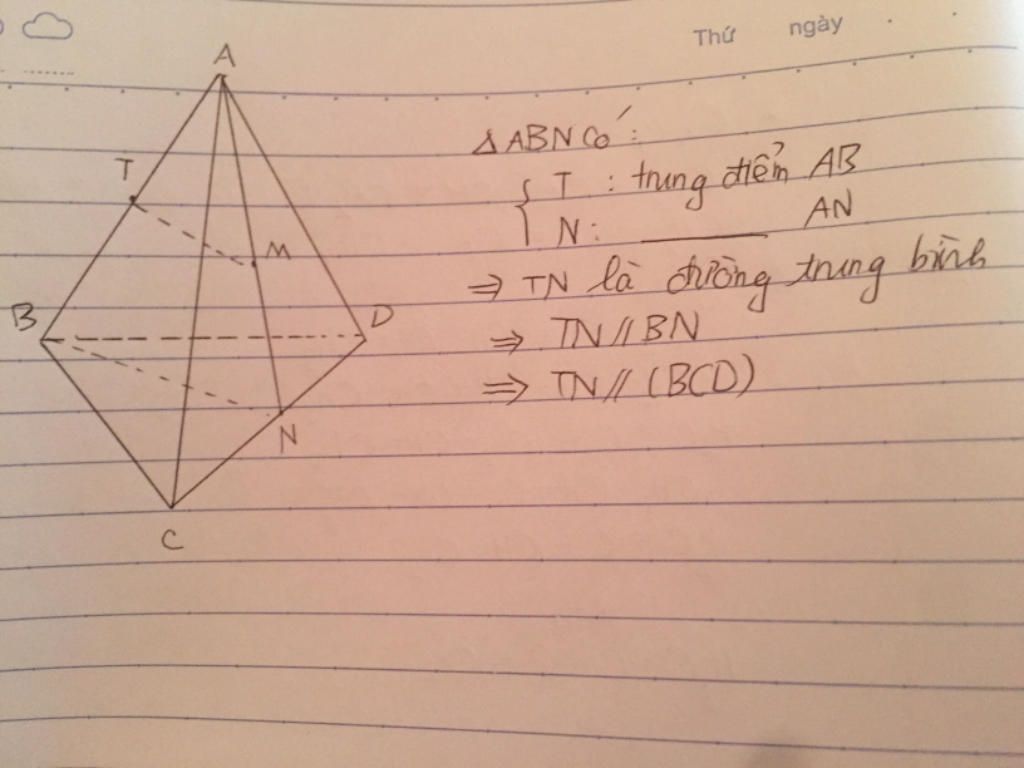 Thứ ngày
A
T
M
B
D
N
C
Δ ABN có:
T : trung điểm AB
N: ——— AN
⇒ TN là đường trung bình
⇒ TN // BN
⇒ TN // (BCD)